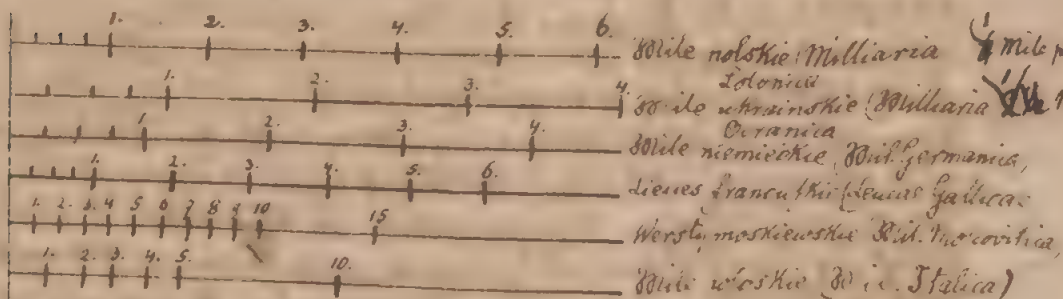 1. 2. 3. 4. 5. 6. Mile polskie (Milliaria Polonica 1 mile
1. 2. 3. 4. Mile ukrainskie (Milliaria Ucranica
1. 2. 3. 4. Mile niemieckie, Mil. Germanica,
1. 2. 3. 4. 5. 6. Lieues francuskie (Leucas Gallica
1. 2. 3. 4 5 6 7 8 9 10 15 Wersty moskiewskie Mil. Moscovitica,
1. 2. 3. 4. 5. 10. Mile włoskie (Italica)